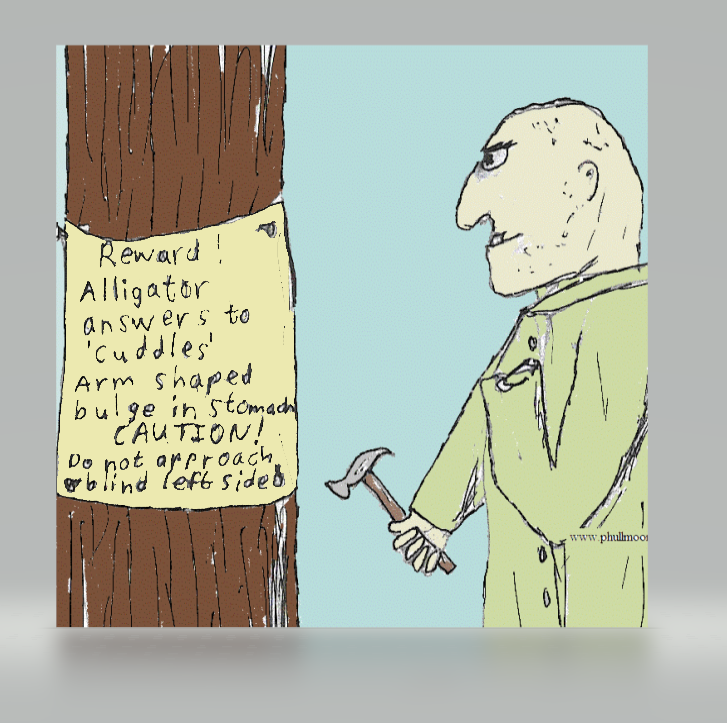 Reward !
Alligator
answers to
'cuddles'
Arm shaped
bulge in stomach
CAUTION!
Do not approach
blind left sided
www.phullmoo